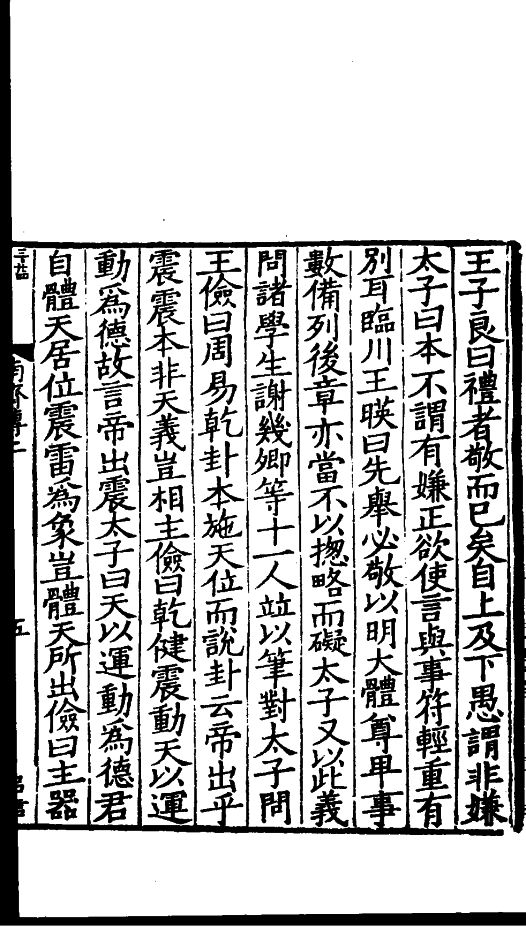 王子良曰禮者敬而已矣自上及下愚謂非嫌
太子曰本不謂有嫌正欲使言與事符輕重有
別耳臨川王暎曰先舉必敬以明大體尊卑事
數備列後章亦當不以揔略而礙太子又以此義
問諸學生謝幾卿等十一人竝以筆對太子問
王儉曰周易乾卦本施天位而說卦云帝出乎
震震本非天義豈相主儉曰乾健震動天以運
動爲德故言帝出震太子曰天以運動爲德君
自體天居位震雷爲象豈體天所出儉曰主器
五